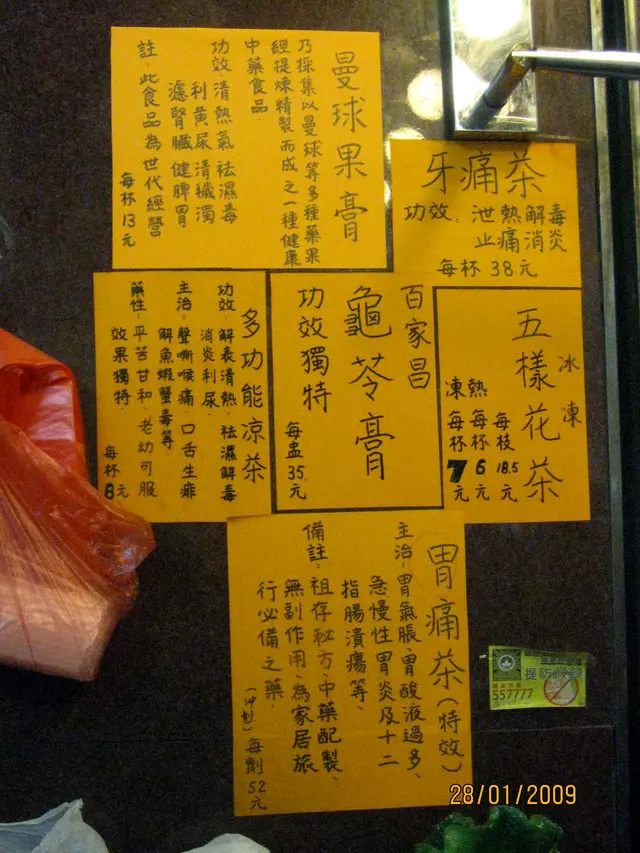 曼球果膏
乃採集以曼球等多種藥果
經提煉精製而成之一種健康
中藥食品
功效清熱氣祛濕毒
利黃尿清穢濁
濾腎臟健脾胃
註:此食品為世代經營
每杯13元
牙痛茶
功效:泄熱解毒
止痛消炎
每杯38元
多功能涼茶
功效:解表清熱、祛濕解毒
消炎利尿
主治:聲嘶喉痛、口舌生痱
解魚蝦蟹毒等、
藥性:平苦甘和、老幼可服
效果獨特、
每杯8元
百家昌
龜苓膏
功效獨特
每盅35元
冰凍
五樣花茶
每枝18.5元
熱每杯6元
凍每杯7元
胃痛茶(特效)
主治:胃氣脹、胃酸液過多、
急慢性胃炎及十二
指腸潰瘍等、
備註:祖存秘方、中藥配製、
無副作用、為家居旅
行必備之藥、
每劑52元
提防
557777
28/01/2009